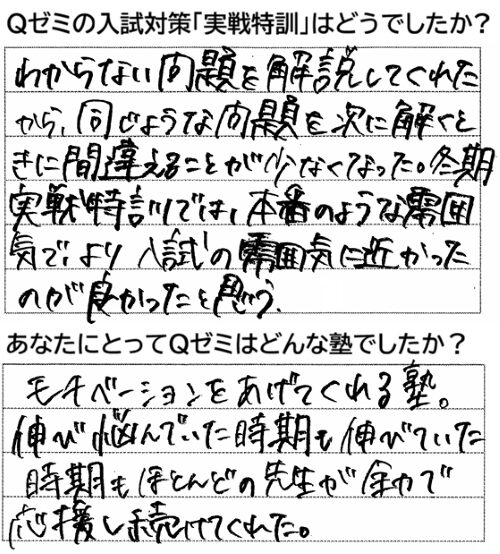 Qゼミの入試対策「実戦特訓」はどうでしたか?
わからない問題を解説してくれた
から、同じような問題を次に解くと
きに間違えることが少なくなった。冬期
実戦特訓では、本番のような雰囲
気で、より入試の雰囲気に近かった
のが良かったと思う。
あなたにとってQゼミはどんな塾でしたか?
モチベーションをあげてくれる塾。
伸び悩んでいた時期も伸びていた
時期もほとんどの先生が全力で
応援し続けてくれた。